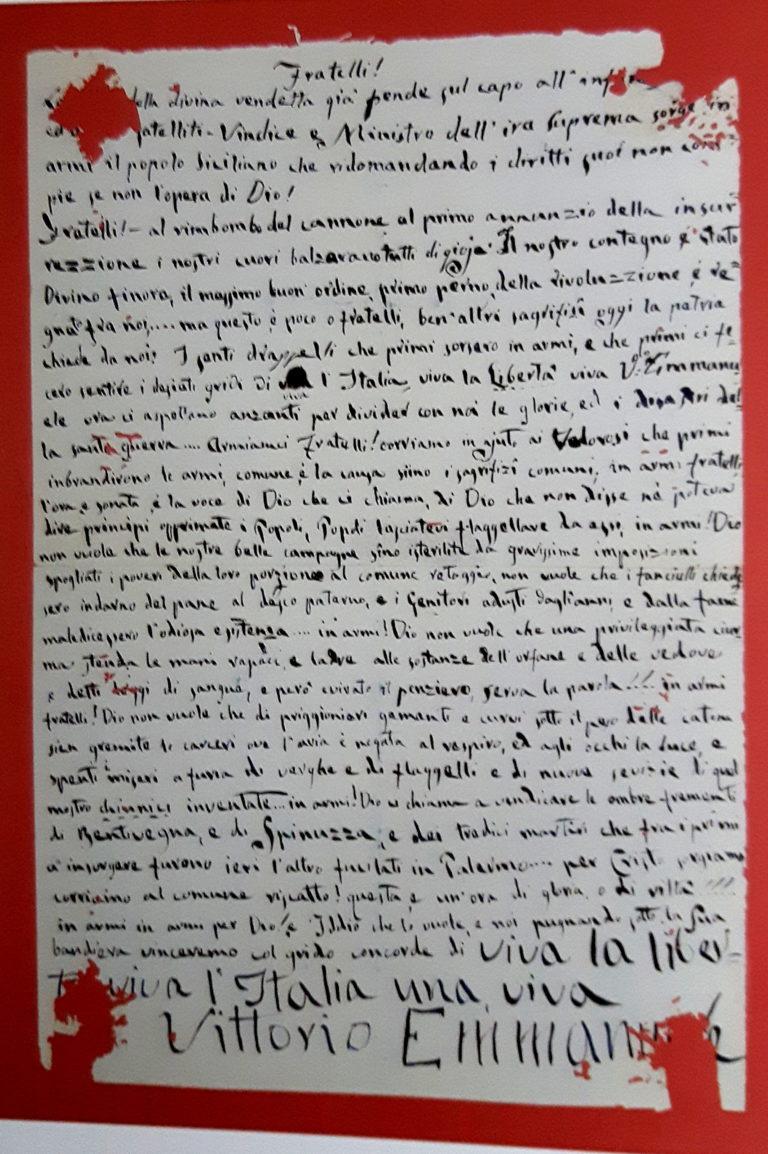 Fratelli!
della divina vendetta già pende sul capo all'
satelliti - Vindice e Ministro dell'ira suprema sorge in
armi il popolo siciliano che ridomandando i diritti suoi non com-
pie se non l'opera di Dio!
Fratelli! - al rimbombo del cannone al primo annunzio della insur-
rezzione i nostri cuori balzarono tutti di gioja. Il nostro contegno è stato
Divino finora, il massimo buon'ordine, primo perno della rivoluzzione è re-
gnat fra noi.... ma questo è poco o fratelli, ben'altri sagrifizî oggi la patria
chiede da noi; I santi drappelli che primi sorsero in armi, e che primi ci fe-
cero sentire i desiati gridi di viva l'Italia, viva la Libertà viva V. Emmanu-
viva
ele ora ci aspettano anzanti per divider con noi le glorie, ed i disastri del-
la santa guerra.... Armiamci Fratelli! corriamo in ajuto ai che primi
inbrandirono le armi, comune è la causa siino i sagrifizî comuni, in armi fratelli
l'ora è sonata è la voce di Dio che ci chiama, di Dio che non disse nè poteva
dire principi opprimate i Popoli, Popoli lasciatevi flaggellare da essi, in armi! Dio
non vuole che le nostre belle campagne sino isterilite da gravissime imposizioni
spogliati i poveri della loro porzione al comune retaggio, non vuole che i fanciulli chiede-
sero indarno del pane al desco paterno, e i Genitori adusti dagli anni e dalla fame
maledicessero l'odiosa esistenza.... in armi! Dio non vuole che una privileggiata ciur-
ma stenda le mani rapaci e ladre alle sostanze dell'orfane e delle vedove
e detti leggi di sangue, e però il penziero, serva la parola!!! in armi
fratelli! Dio non vuole che di priggionieri gementi e curvi sotto il peso delle catene
sien gremite le carceri ove l'aria è negata al respiro, ed agli occhi la luce, e
spenti miseri a furia di verghe e di flaggelli e di nuove sevizie di quel
mostro inventate... in armi! Dio ci chiama a vendicare le ombre frementi
di Bentivegna, e di Spinuzza, e dei tredici martiri che fra i primi
a insorgere furono ieri l'altro fucilati in Palermo.... per Cristo sorgiamo
corriamo al comune riscatto! questa è un'ora di gloria o di viltà!!!
in armi in armi per Dio! è Iddio che lo vuole, e noi pugnando sotto la sua
bandiera vinceremo col grido concorde di viva la liber-
tà viva l'Italia una, viva
Vittorio Emmanuele